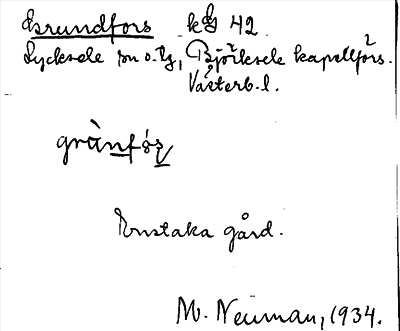 Grundfors kg 42
Lycksele sn o. tg, Björksele kapellförs.
Västerb. l.
Enstaka gård.
M. Neuman, 1934.